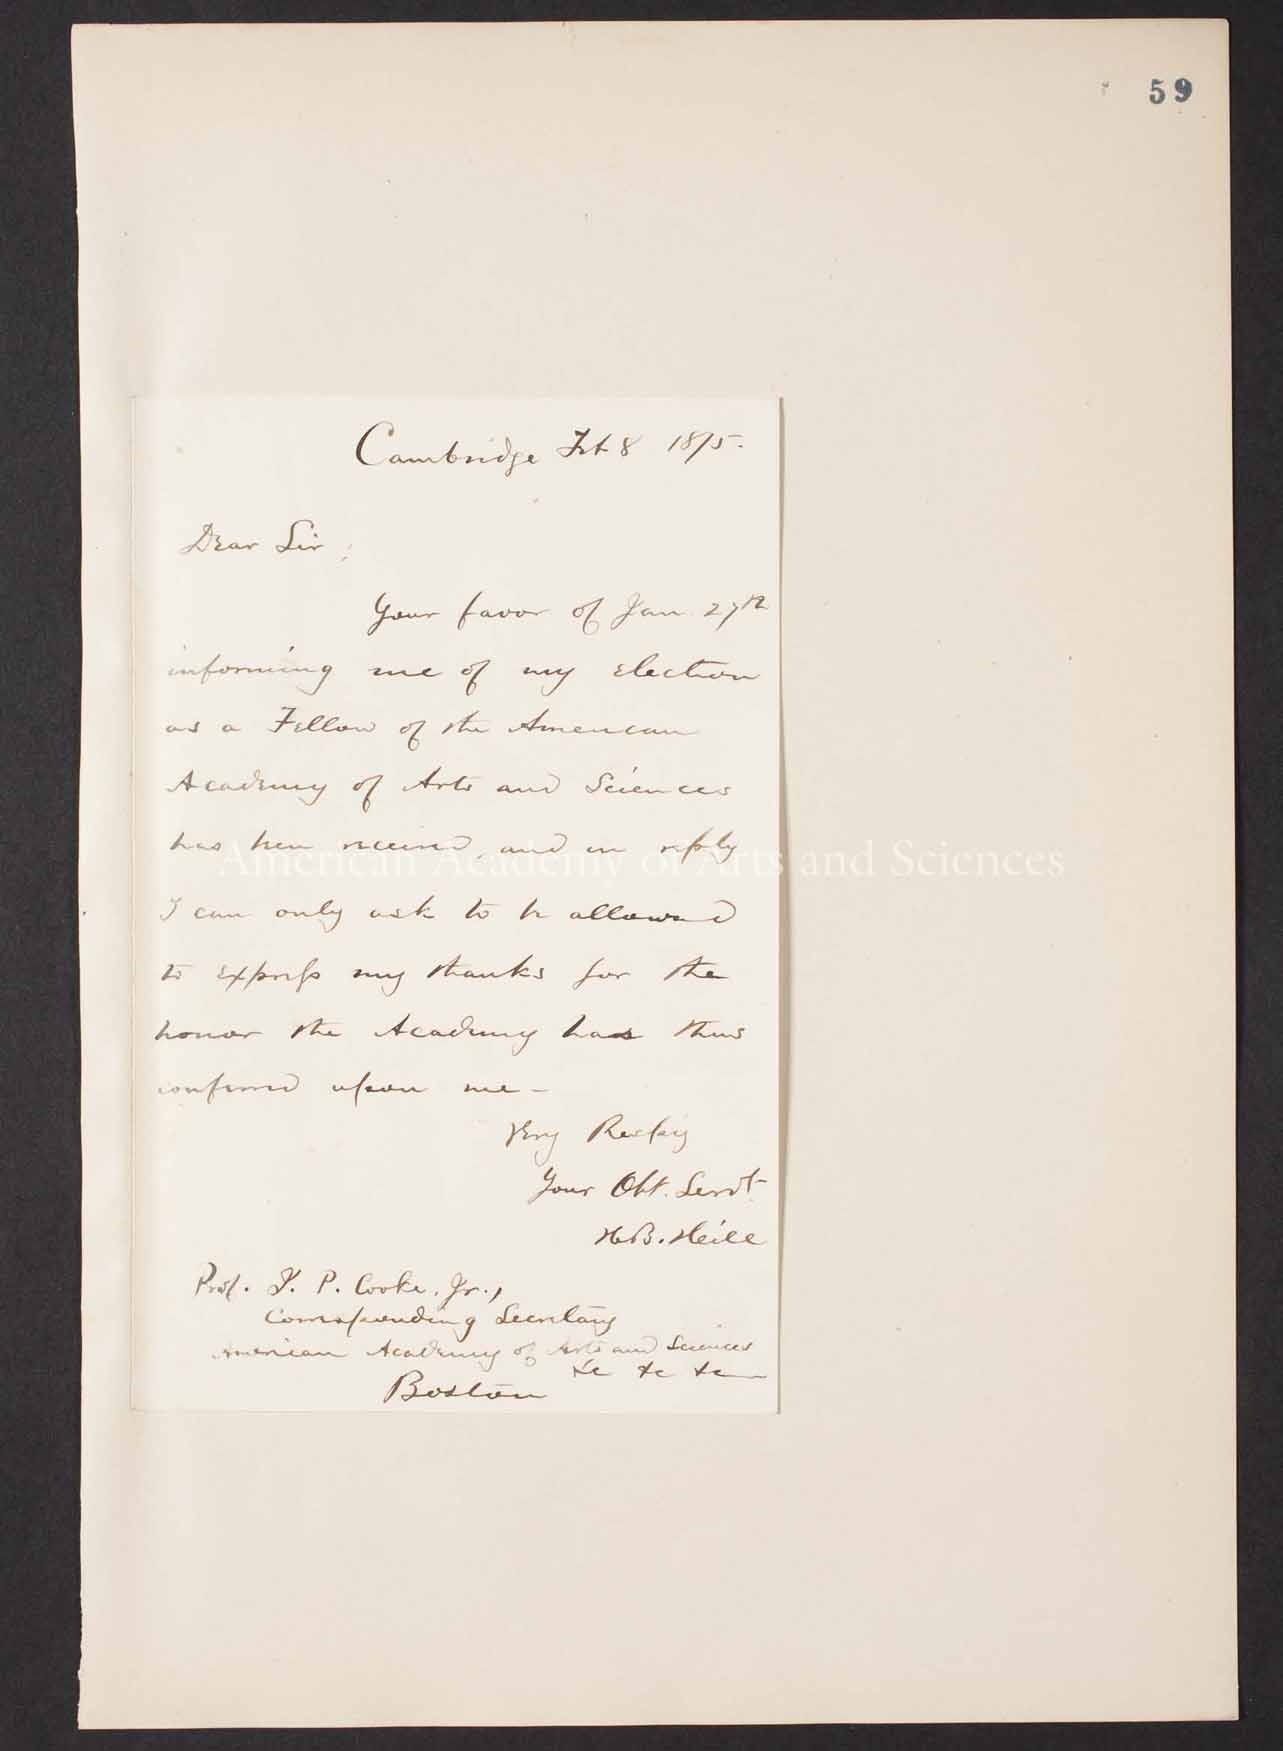 59
Cambridge Feb 8 1875.
Dear Sir;
Your favor of Jan. 27th
informing me of my election
as a Fellow of the American
Academy of Arts and Sciences
has been received, and in reply
American Academy of Arts and Sciences
I can only ask to be allowed
to express my thanks for the
honor the Academy has thus
conferred upon me —
Very Resp'y
Your Obt. Servt.
H.B. Hill
Prof. J. P. Cooke, Jr.,
Corresponding Secretary
American Academy of Arts and Sciences
&c &c &c
Boston